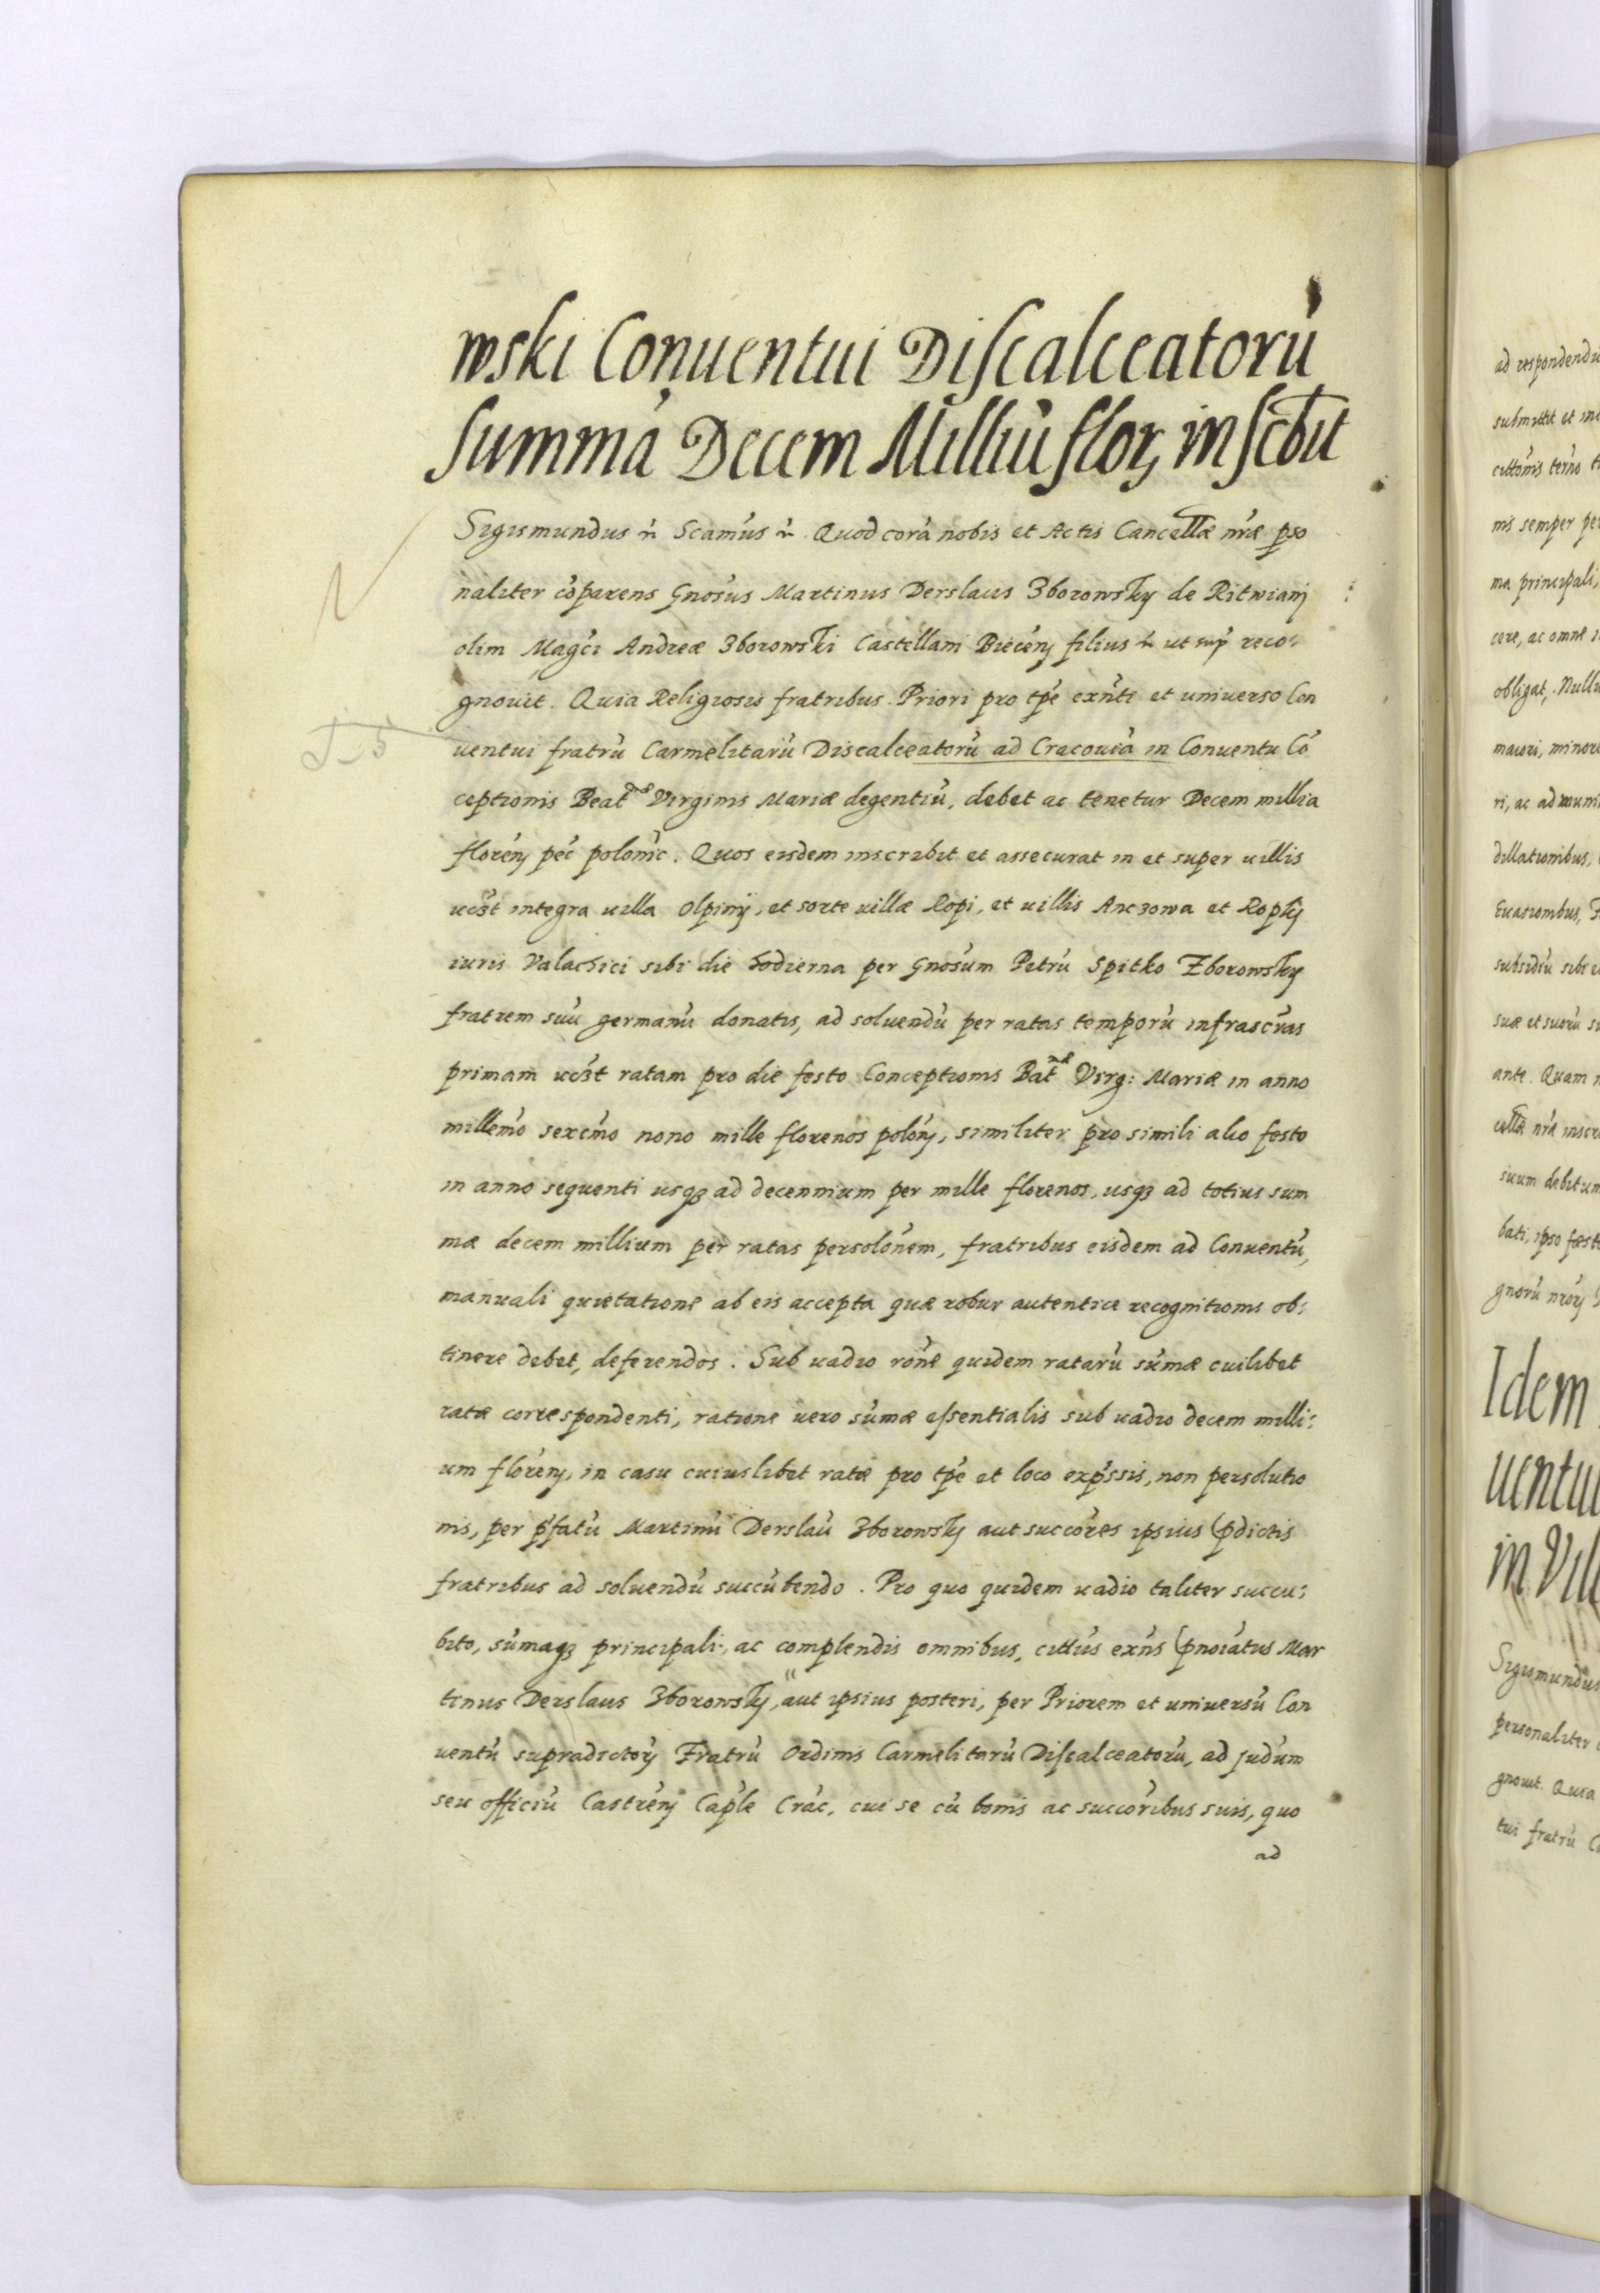 wski Conuentui Discalceatorú
Summá Decem Milliú flor, inscbit
Sigismundus etc Scimus etc Quod corá nobis et Actis Cancellæ nræ pso
naliter cóparens Gnósus Martinus Derslaus Zborowsky de Ritwiany
olim Magci Andreæ Zborowski Castellani Biecen filius etc ut sup reco:
gnouit. Quia Religiosis fratribus Priori pro tpe exnti et uniuerso Con
uentui fratrú Carmelitarú Discalceatorú ad Cracouiá in Conuentu Có
ceptionis Beatmæ Virginis Mariæ degentiú, debet ac tenetur Decem millia
floren pec polonic. Quos eisdem inscribit et assecurat in et super uillis
uczt integra uilla Olpiny, et sorte uillæ Ropi, et uillis Anczowa et Ropky
iuris Valachici sibi die hodierna per Gnosum Petrú Spitko Zborowsky
fratrem suú germanú donatis, ad soluendú per ratas temporú infrascras
primam uczt ratam pro die festo Conceptionis Batmæ Virg: Mariæ in anno
millemo sexcmo nono mille florenos polon, similiter pro simili alio festo
in anno sequenti usq3 ad decennium per mille florenos, usq3 ad totius sum
mæ decem millium per ratas persolonem, fratribus eisdem ad Conuentú,
manuali quietatione ab eis accepta quæ robur autenticæ recognitionis ob:
tinere debet, deferendos. Sub uadio rone quidem ratarú súmæ cuilibet
ratæ correspondenti, ratione uero súmæ essentialis sub uadio decem milli:
um floren, in casu cuiuslibet ratæ pro tpe et loco expssis, non persolutio
nis, per pfatú Martinú Derslaú Zborowsky aut succores ipsius pdictis
fratribus ad soluendú succúbendo. Pro quo quidem uadio taliter succu:
bito, súmaq3 principali, ac complendis omnibus, cittus exns pnoiatus Mar
tinus Derslaus Zborowsky, aut ipsius posteri, per Priorem et uniuersú Con
uentú supradictor Fratrú Ordinis Carmelitarú Discalceatorú, ad Judum
seu officiú Castren Caple Crac, cui se cú bonis ac succoribus suis, quo
ad
ad respondendú
submittit et
cittonis
nis semper
ma principali,
cere, ac omne
obligat, Nullis
maiori,
ri, ac
dillationibus,
Euationibus,
subsidiú sibi
suæ et suorú
ante. Quam
cellæ nræ
suum debitum
bati, ipso
gnorú
Idem
uentui
in Vill
Sigismundus
personaliter
gnouit. Quia
tui fratrú